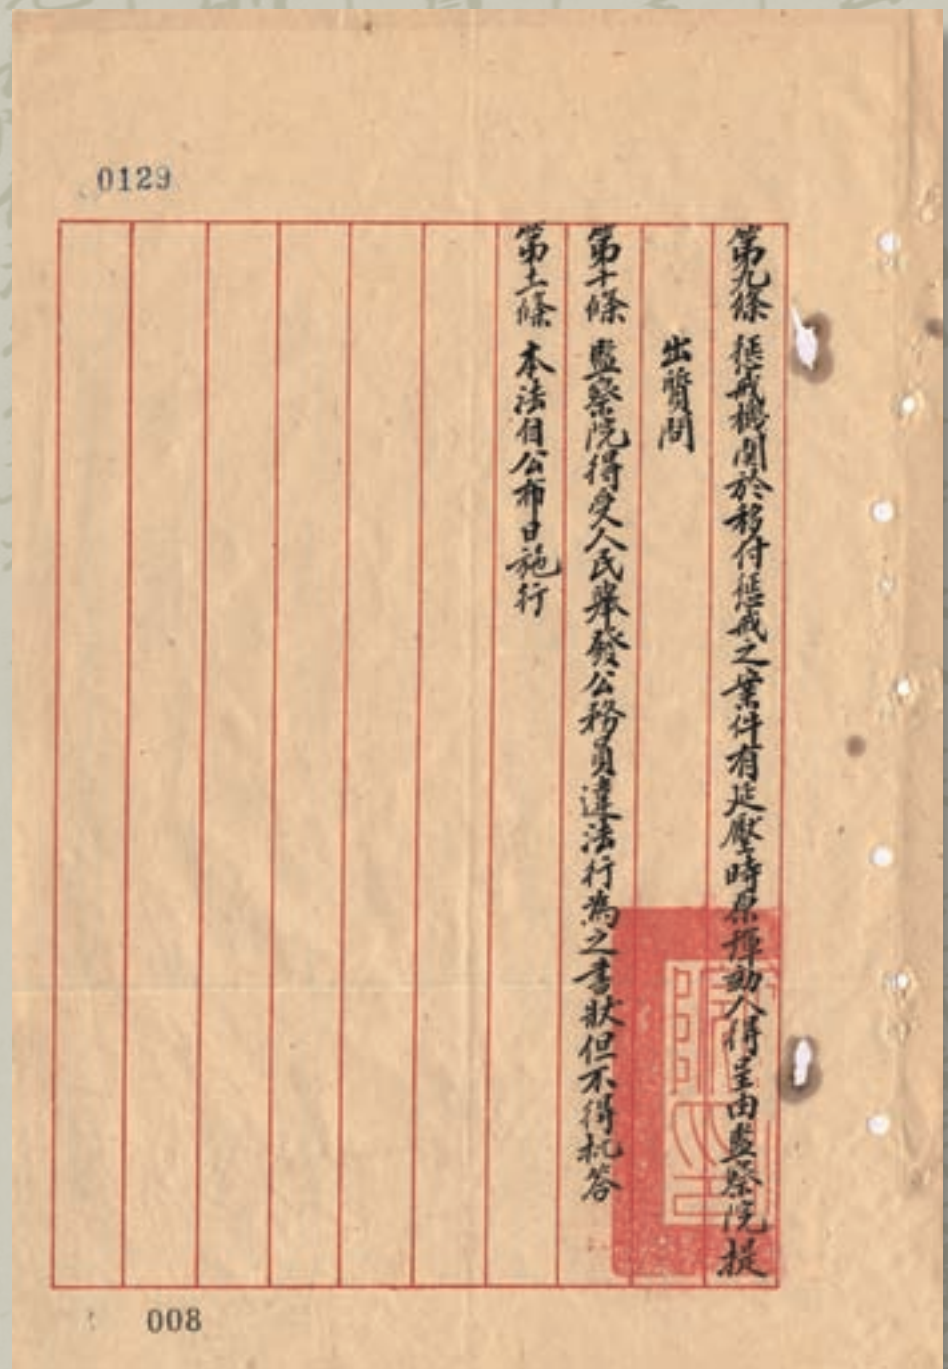 0129
第九條 懲戒機關於移付懲戒之案件有延壓時原彈劾人得呈由監察院提
出質問
第十條 監察院得受人民舉發公務員違法行為之書狀但不得批答
第十一條 本法自公布日施行
008